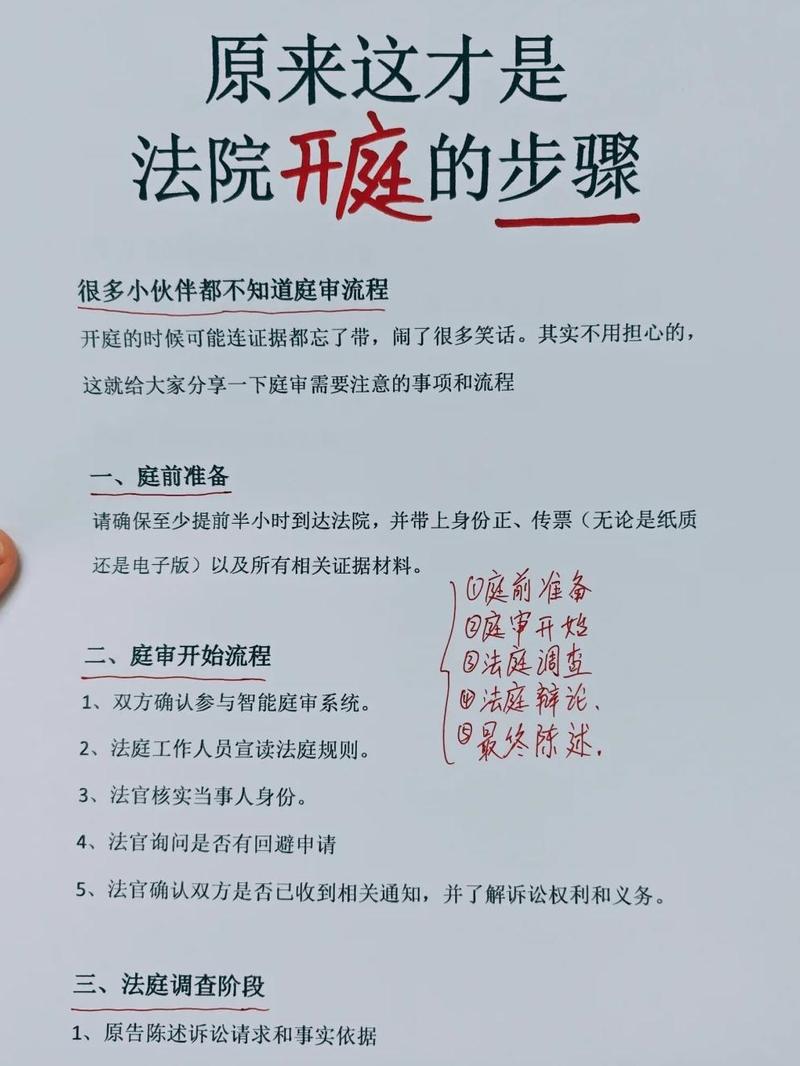 原来这才是
法院开庭的步骤
很多小伙伴都不知道庭审流程
开庭的时候可能连证据都忘了带，闹了很多笑话。其实不用担心的，
这就给大家分享一下庭审需要注意的事项和流程
一、庭前准备
请确保至少提前半小时到达法院，并带上身份正、传票（无论是纸质
还是电子版）以及所有相关证据材料。
①庭前准备
②庭审开始
③法庭调查
④法庭辩论、
⑤最终陈述.
二、庭审开始流程
1、双方确认参与智能庭审系统。
2、法庭工作人员宣读法庭规则。
3、法官核实当事人身份。
4、法官询问是否有回避申请
5、法官确认双方是否已收到相关通知，并了解诉讼权利和义务。
三、法庭调查阶段
1、原告陈述诉讼请求和事实依据